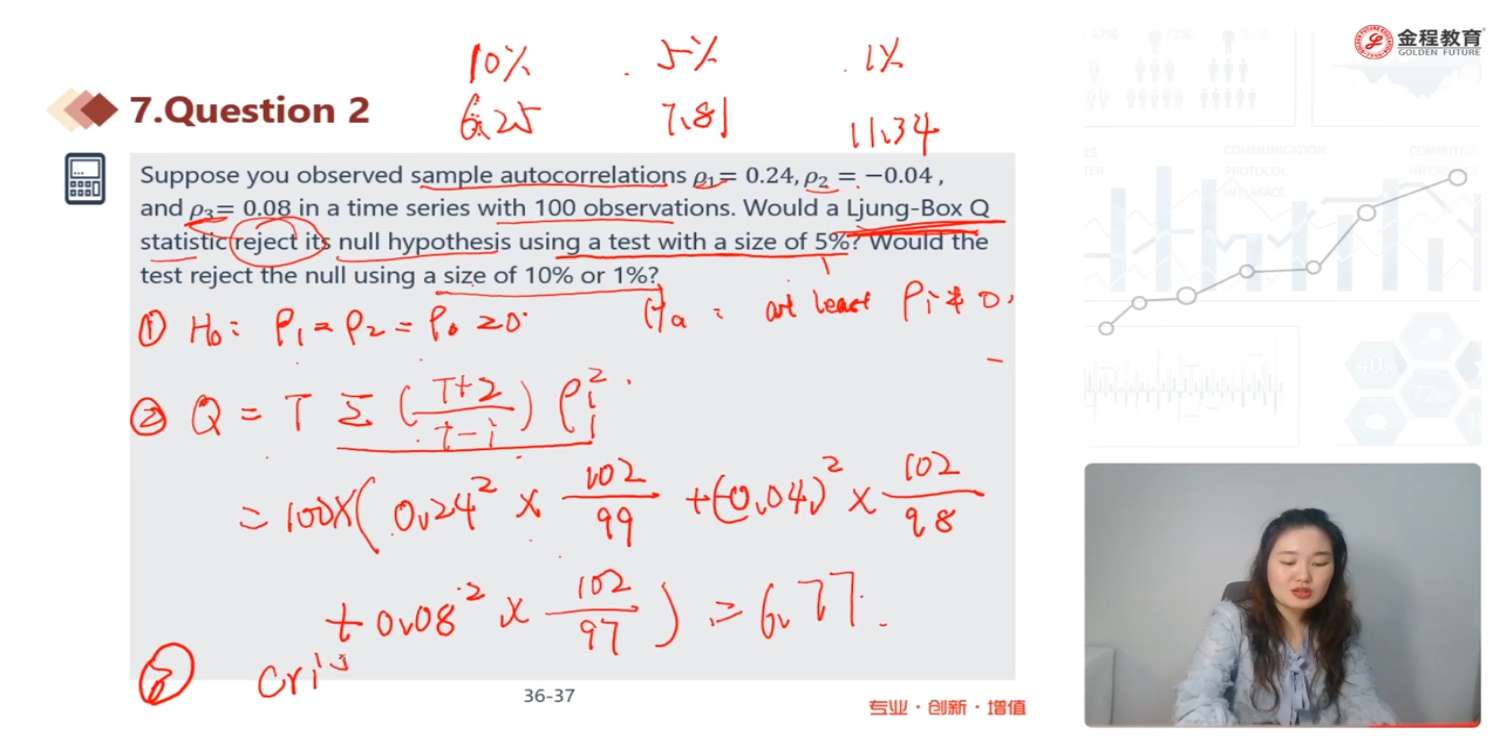 金程教育
GOLDEN FUTURE
10% 5% 1%
6.25 7.81 11.34
7.Question 2
Suppose you observed sample autocorrelations ρ₁= 0.24, ρ₂ = −0.04 ,
and ρ₃= 0.08 in a time series with 100 observations. Would a Ljung-Box Q
statistic reject its null hypothesis using a test with a size of 5%? Would the
test reject the null using a size of 10% or 1%?
① H₀: ρ₁ = ρ₂ = ρ₀ = 0 Hₐ: at least ρi ≠ 0.
② Q = T Σ (T+2/t-i) ρi²
= 100×( 0.24² × 102/99 + (-0.04)² × 102/98
+ 0.08² × 102/97 ) = 6.77.
③ Cri
36-37
专业·创新·增值
COMMUNICATION
PROTOCOL